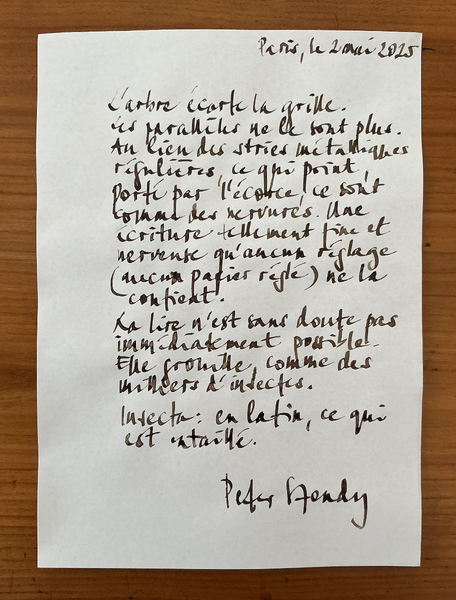 Paris, le 2 mai 2025
L'arbre écorte la grille.
Les parallèles ne le sont plus.
Au lieu des stries métalliques
régulières, ce qui point,
porté par l'écorce, ce sont
comme des nervures. Une
écriture tellement fine et
nerveuse qu'aucun réglage
(aucun papier réglé) ne la
contient.
La lire n'est sans doute pas
immédiatement possible.
Elle grouille, comme des
milliers d'insectes.
Insecta : en latin, ce qui
est entaillé.
Peter Szendy